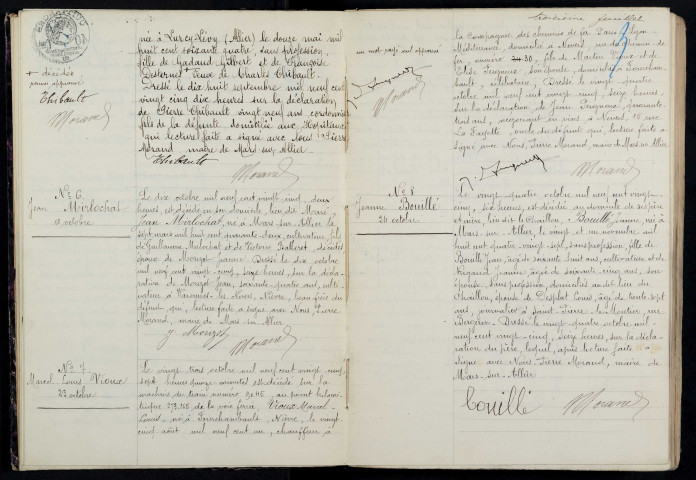 née à Lurcy-Lévy (Allier) le douze mai mil
huit cent soixante quatre, sans profession,
fille de Gadaud Gilbert et de Françoise
veuve de Charles Thibault.
Dressé le dix huit septembre mil neuf cent
vingt cinq dix heures sur la déclaration
de Pierre Thibault vingt neuf ans, cordonnier
fils de la défunte, domicilié aux
qui lecture faite a signé avec Nous Pierre
Morand, maire de Mars-sur-Allier.
Thibault
Morand
+ décédée
Thibault
Morand
N° 6
Jean Mirlochat
10 octobre
Le dix octobre mil neuf cent vingt cinq, deux
heures, est décédé en son domicile, lieu dit
Jean Mirlochat, né à Mars-sur-Allier le
sept mars mil huit cent quarante-deux, cultivateur, fils
de Guillaume Mirlochat et de Victoire décédés
époux de Jeanne. Dressé le dix octobre
mil neuf cent vingt-cinq, seize heures, sur la décla-
ration de Jean, soixante quatre ans, culti-
vateur à Varennes-les-Nevers, Nièvre, beau-frère du
défunt qui, lecture faite a signé avec Nous Pierre
Morand, maire de Mars-sur-Allier
Morand
N° 7
Marcel Louis Vioux
23 octobre
Le vingt trois octobre mil neuf cent vingt cinq,
sept heures quinze minutes est décédé sur la
machine du train numéro au point kilomé-
trique de la voie ferrée Vioux Marcel-
Louis, né à Fourchambault, Nièvre, le vingt-
cinq août mil neuf cent un, chauffeur à
troisième feuillet
la Compagnie des chemins de fer Paris Lyon
Méditerranée, domicilié à Nevers, rue du chemin de
fer, numéro 30, fils de Vioux et de
Elise son épouse, domiciliés à Fourcham-
bault, Dressé le vingt-quatre
octobre mil neuf cent vingt-cinq, seize heures,
sur la déclaration de Jean quarante
trois ans, à Nevers, 15 rue
La Fayette, oncle du défunt qui, lecture faite a
signé avec Nous, Pierre Morand, maire de Mars-sur-Allier
Morand
un mot rayé nul approuvé
Morand
N° 8
Jeanne Bouillé
24 octobre
Le vingt-quatre octobre mil neuf cent vingt-
cinq, dix heures, est décédée au domicile de ses père
et mère, lieu dit le Chaillou, Bouillé Jeanne, née à
Mars-sur-Allier, le vingt et un novembre mil
huit cent quatre-vingt-sept, sans profession, fille de
Bouillé Jean, âgé de soixante huit ans, cultivateur et de
Jeanne, âgée de soixante-cinq ans, son
épouse, sans profession, domiciliés au dit lieu du
Chaillou, épouse de Louis, âgé de trente-sept
ans, journalier à Saint-Pierre-le-Moutier, rue
Dressé le vingt-quatre octobre mil
neuf cent vingt-cinq, seize heures, sur la décla-
ration du père, lequel, après lecture faite a
signé avec Nous, Pierre Morand, maire de
Mars-sur-Allier.
Bouillé
Morand